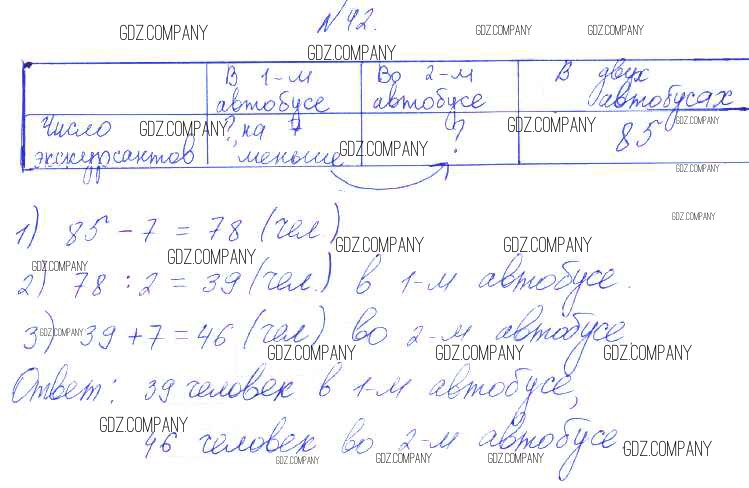 №42.
GDZ.COMPANY GDZ.COMPANY GDZ.COMPANY
GDZ.COMPANY
В 1-м автобусе Во 2-м автобусе В двух автобусах
Число экскурсантов ?, на 7 меньше ? 85
GDZ.COMPANY GDZ.COMPANY GDZ.COMPANY
GDZ.COMPANY GDZ.COMPANY
GDZ.COMPANY
1) 85 - 7 = 78 (чел)
GDZ.COMPANY GDZ.COMPANY GDZ.COMPANY
GDZ.COMPANY
2) 78 : 2 = 39 (чел.) в 1-м автобусе.
3) 39 + 7 = 46 (чел) во 2-м автобусе.
GDZ.COMPANY
GDZ.COMPANY GDZ.COMPANY GDZ.COMPANY
Ответ: 39 человек в 1-м автобусе,
GDZ.COMPANY
46 человек во 2-м автобусе
GDZ.COMPANY GDZ.COMPANY GDZ.COMPANY GDZ.COMPANY